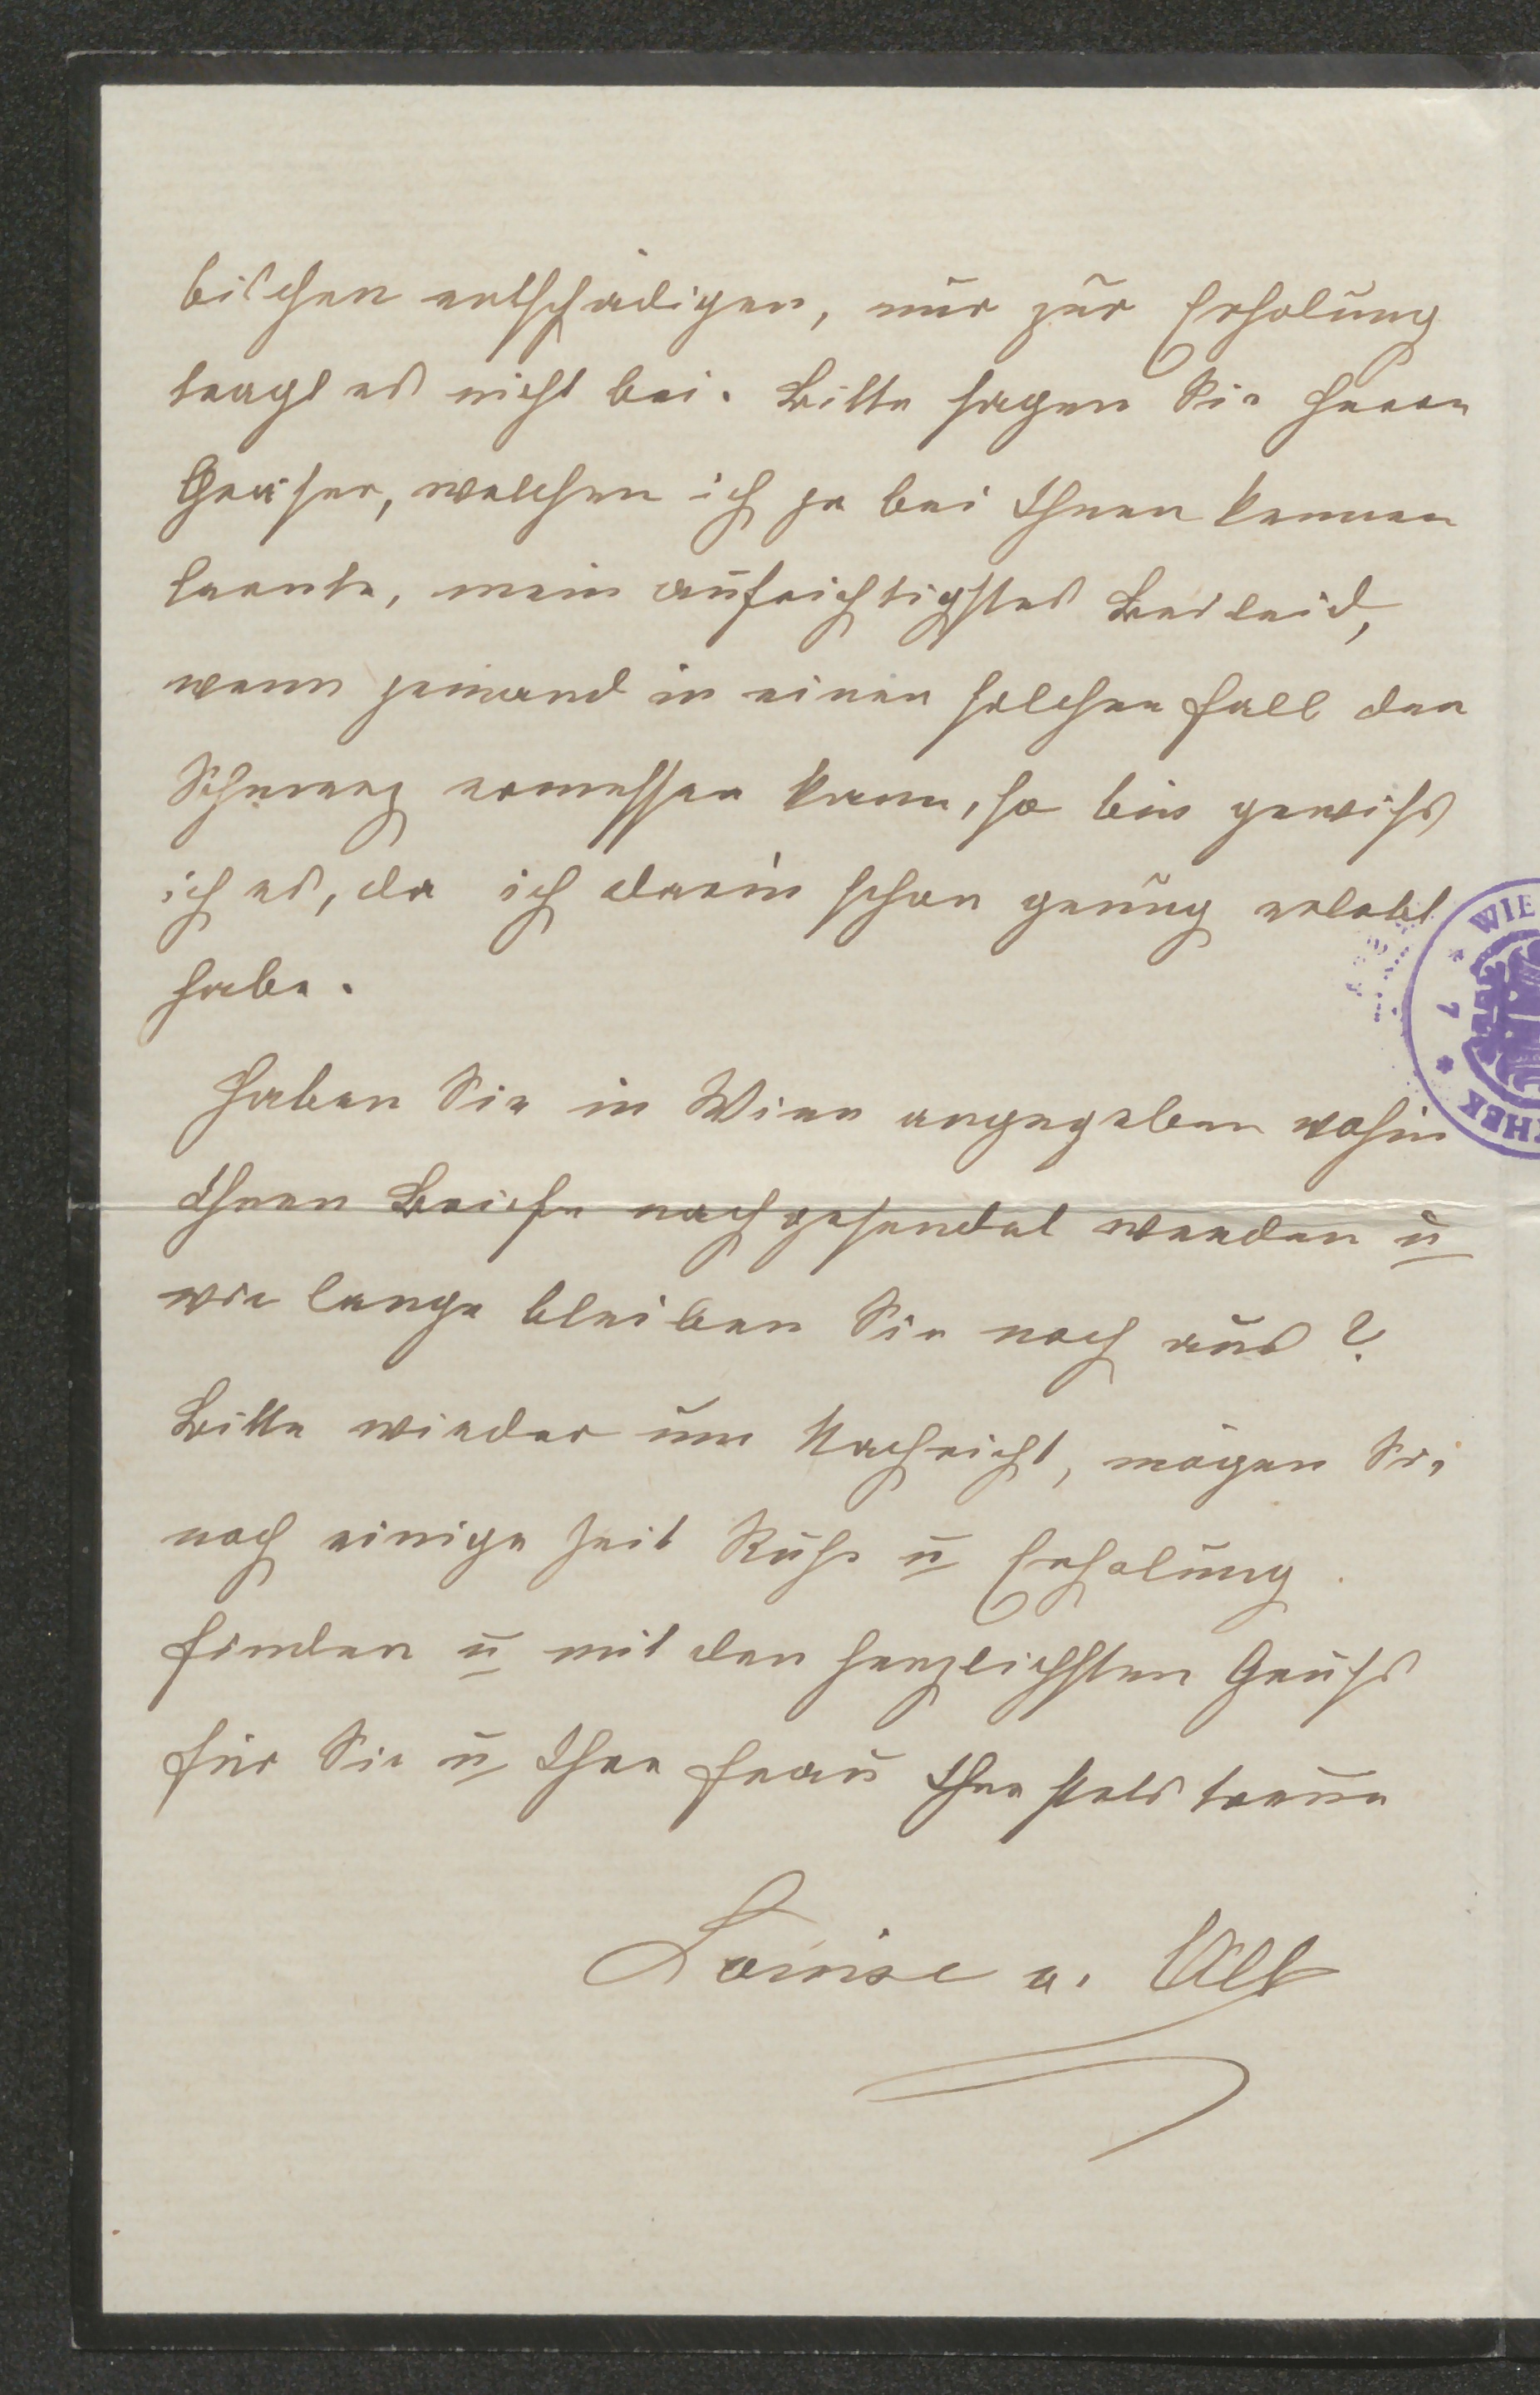 bischen entschädigen, nur zur Erholung
tragt es nicht bei. Bitte sagen Sie Herrn
welchen ich ja bei Ihnen kennen
lernte, mein aufrichtigstes Beileid,
wenn jemand in einen solchen Fall den
Schmerz ermessen kann, so bin gewiß
ich es, da ich darin schon genug erlebt
habe.
Haben Sie in Wien angegeben wohin
Ihnen Briefe nachgesendet werden u
wie lange bleiben Sie noch aus?
Bitte wieder um Nachricht, mögen Sie
noch einige Zeit Ruhe u Erholung
finden u mit den herzlichsten Gruß
für Sie u Ihre Frau Ihre stets treue
Louise v. Alt
WIE
* 7 *
HEK